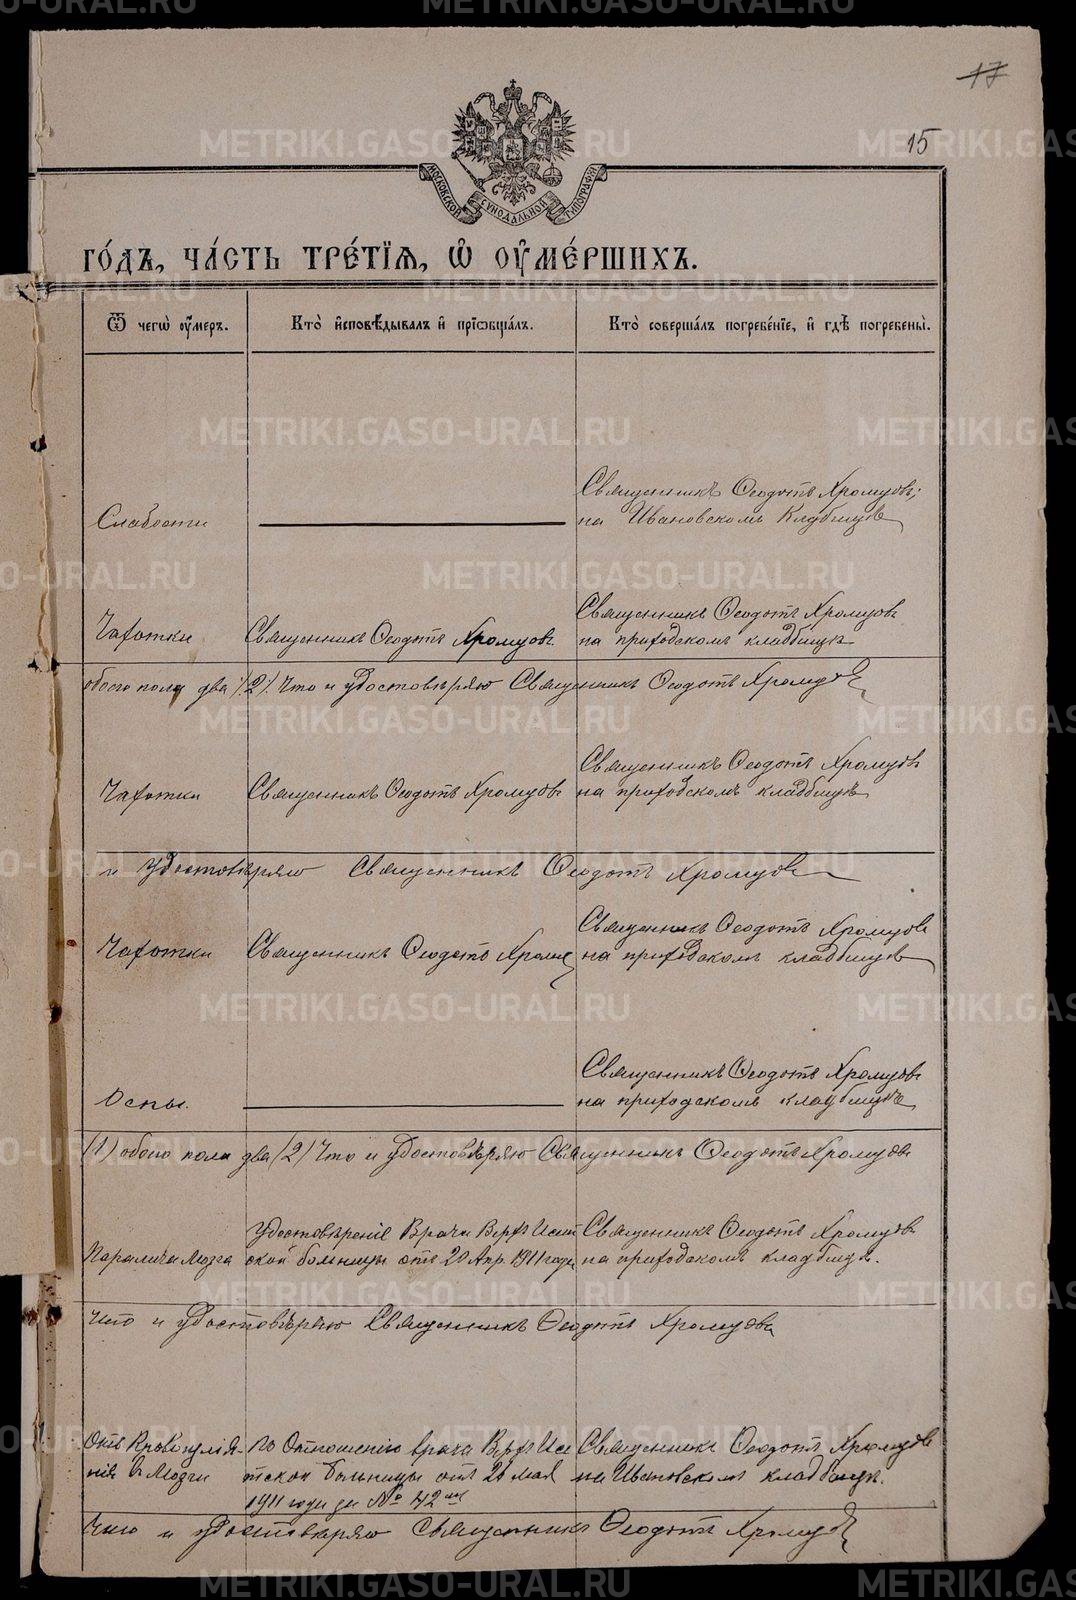 17
15
МОСКОВСКОЙ СѴНОДАЛЬНОЙ ТИПОГРАФІИ
го́дъ, ча́сть тре́тїѧ, ѽ ᲂу҆ме́ршихъ.
Ѿ чегѡ̀ ᲂу҆́меръ.
Кто̀ и҆сповѣ́дывалъ и҆ прїѡбща́лъ.
Кто̀ соверша́лъ погребе́нїе, и҆ гдѣ̀ погребены̀.
Слабости
Священникъ Ѳеодотъ Хромцовъ;
на Ивановскомъ Кладбищѣ
Чахотки
Священникъ Ѳеодотъ Хромцовъ
Священникъ Ѳеодотъ Хромцовъ
на приходскомъ кладбищѣ
обоего пола два /2/. Что и удостовѣряю Священникъ Ѳеодотъ Хромцовъ
Чахотки
Священникъ Ѳеодотъ Хромцовъ
Священникъ Ѳеодотъ Хромцовъ
на приходскомъ кладбищѣ
и удостовѣряю Священникъ Ѳеодотъ Хромцовъ
Чахотки
Священникъ Ѳеодотъ Хромцовъ
Священникъ Ѳеодотъ Хромцовъ
на приходскомъ кладбищѣ
Оспы.
Священникъ Ѳеодотъ Хромцовъ
на приходскомъ кладбищѣ
(1) обоего пола два (2) Что и удостовѣряю Священникъ Ѳеодотъ Хромцовъ
Паралича Мозга
Удостовѣреніе Врача Верхъ Исет
ской больницы отъ 20 Апр. 1911 года
Священникъ Ѳеодотъ Хромцовъ
на приходскомъ кладбищѣ.
Что и удостовѣряю Священникъ Ѳеодотъ Хромцовъ
Отъ Кровоизлія-
нія въ Мозги
По Отношенію врача Верхъ Исе
тской больницы отъ 26 мая
1911 года за № 42
Священникъ Ѳеодотъ Хромцовъ
на Ивановскомъ кладбищѣ.
Что и удостовѣряю Священникъ Ѳеодотъ Хромцовъ
METRIKI.GASO-URAL.RU